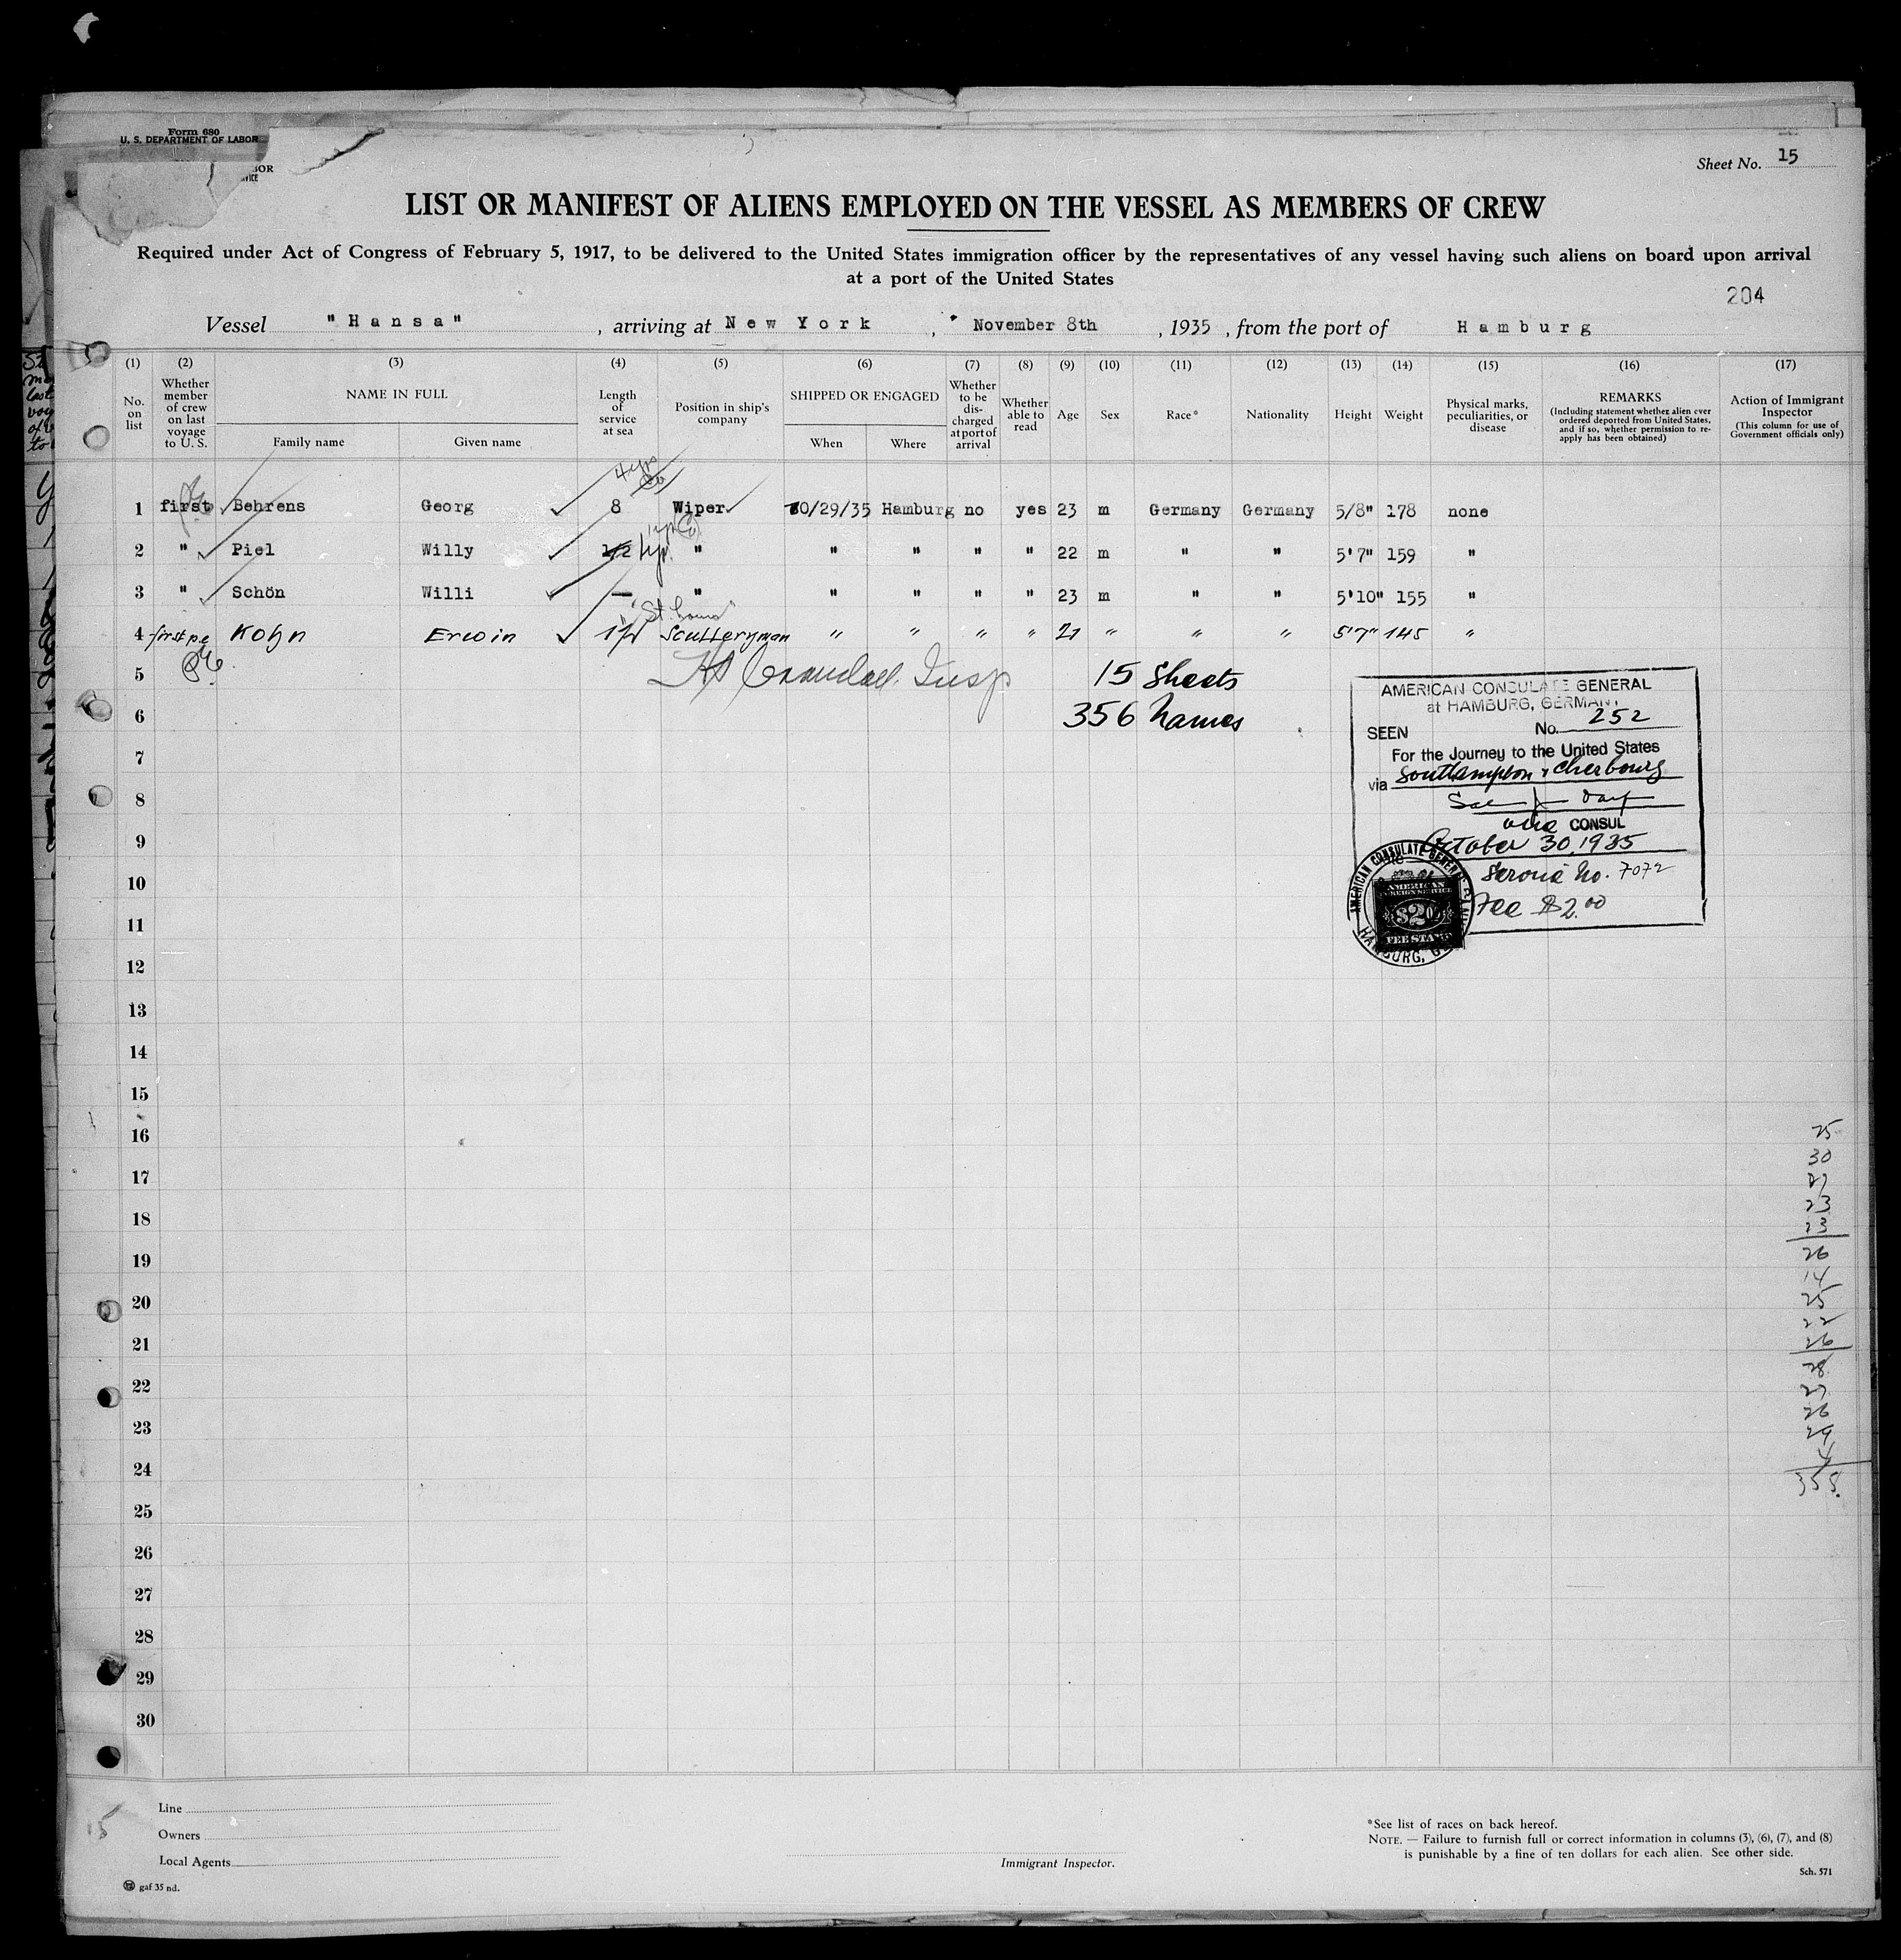 Form 680
U. S. DEPARTMENT OF LABOR
Sheet No. 15
LIST OR MANIFEST OF ALIENS EMPLOYED ON THE VESSEL AS MEMBERS OF CREW
Required under Act of Congress of February 5, 1917, to be delivered to the United States immigration officer by the representatives of any vessel having such aliens on board upon arrival
at a port of the United States
204
Vessel "Hansa", arriving at New York, November 8th, 1935, from the port of Hamburg
(1) (2) (3) (4) (5) (6) (7) (8) (9) (10) (11) (12) (13) (14) (15) (16) (17)
No. on list
Whether member of crew on last voyage to U. S.
NAME IN FULL
Family name
Given name
Length of service at sea
Position in ship's company
SHIPPED OR ENGAGED
When
Where
Whether to be discharged at port of arrival
Whether able to read
Age
Sex
Race*
Nationality
Height
Weight
Physical marks, peculiarities, or disease
REMARKS
(Including statement whether alien ever ordered deported from United States, and if so, whether permission to reapply has been obtained)
Action of Immigrant Inspector
(This column for use of Government officials only)
4 yrs
1 first Behrens Georg 8 Wiper 10/29/35 Hamburg no yes 23 m Germany Germany 5/8" 178 none
2 " Piel Willy 1/2 1 yr. " " " " " 22 m " " 5'7" 159 "
3 " Schön Willi — " " " " " 23 m " " 5'10" 155 "
4 first Kohn Erwin Sculleryman " " " " 21 " " " 5'7" 145 "
5 Insp 15 Sheets
6 356 Names
7
8
9
10
11
12
13
14
15
16
17
18
19
20
21
22
23
24
25
26
27
28
29
30
AMERICAN CONSULATE GENERAL
at HAMBURG, GERMANY
SEEN No. 252
For the Journey to the United States
via Southampton & Cherbourg
vice CONSUL
October 30, 1935
Service No. 7072
Fee $2.00
AMERICAN CONSULATE GENERAL
HAMBURG,
AMERICAN
FOREIGN SERVICE
$2
FEE STAMP
25
30
23
23
26
14
25
22
26
28
26
29
4
358.
15
Line
Owners
Local Agents
Immigrant Inspector.
*See list of races on back hereof.
NOTE. — Failure to furnish full or correct information in columns (3), (6), (7), and (8)
is punishable by a fine of ten dollars for each alien. See other side.
Sch. 571
gaf 35 nd.